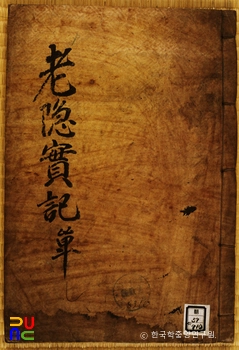 老隱實記 單
PUAC
© 한국학중앙연구원